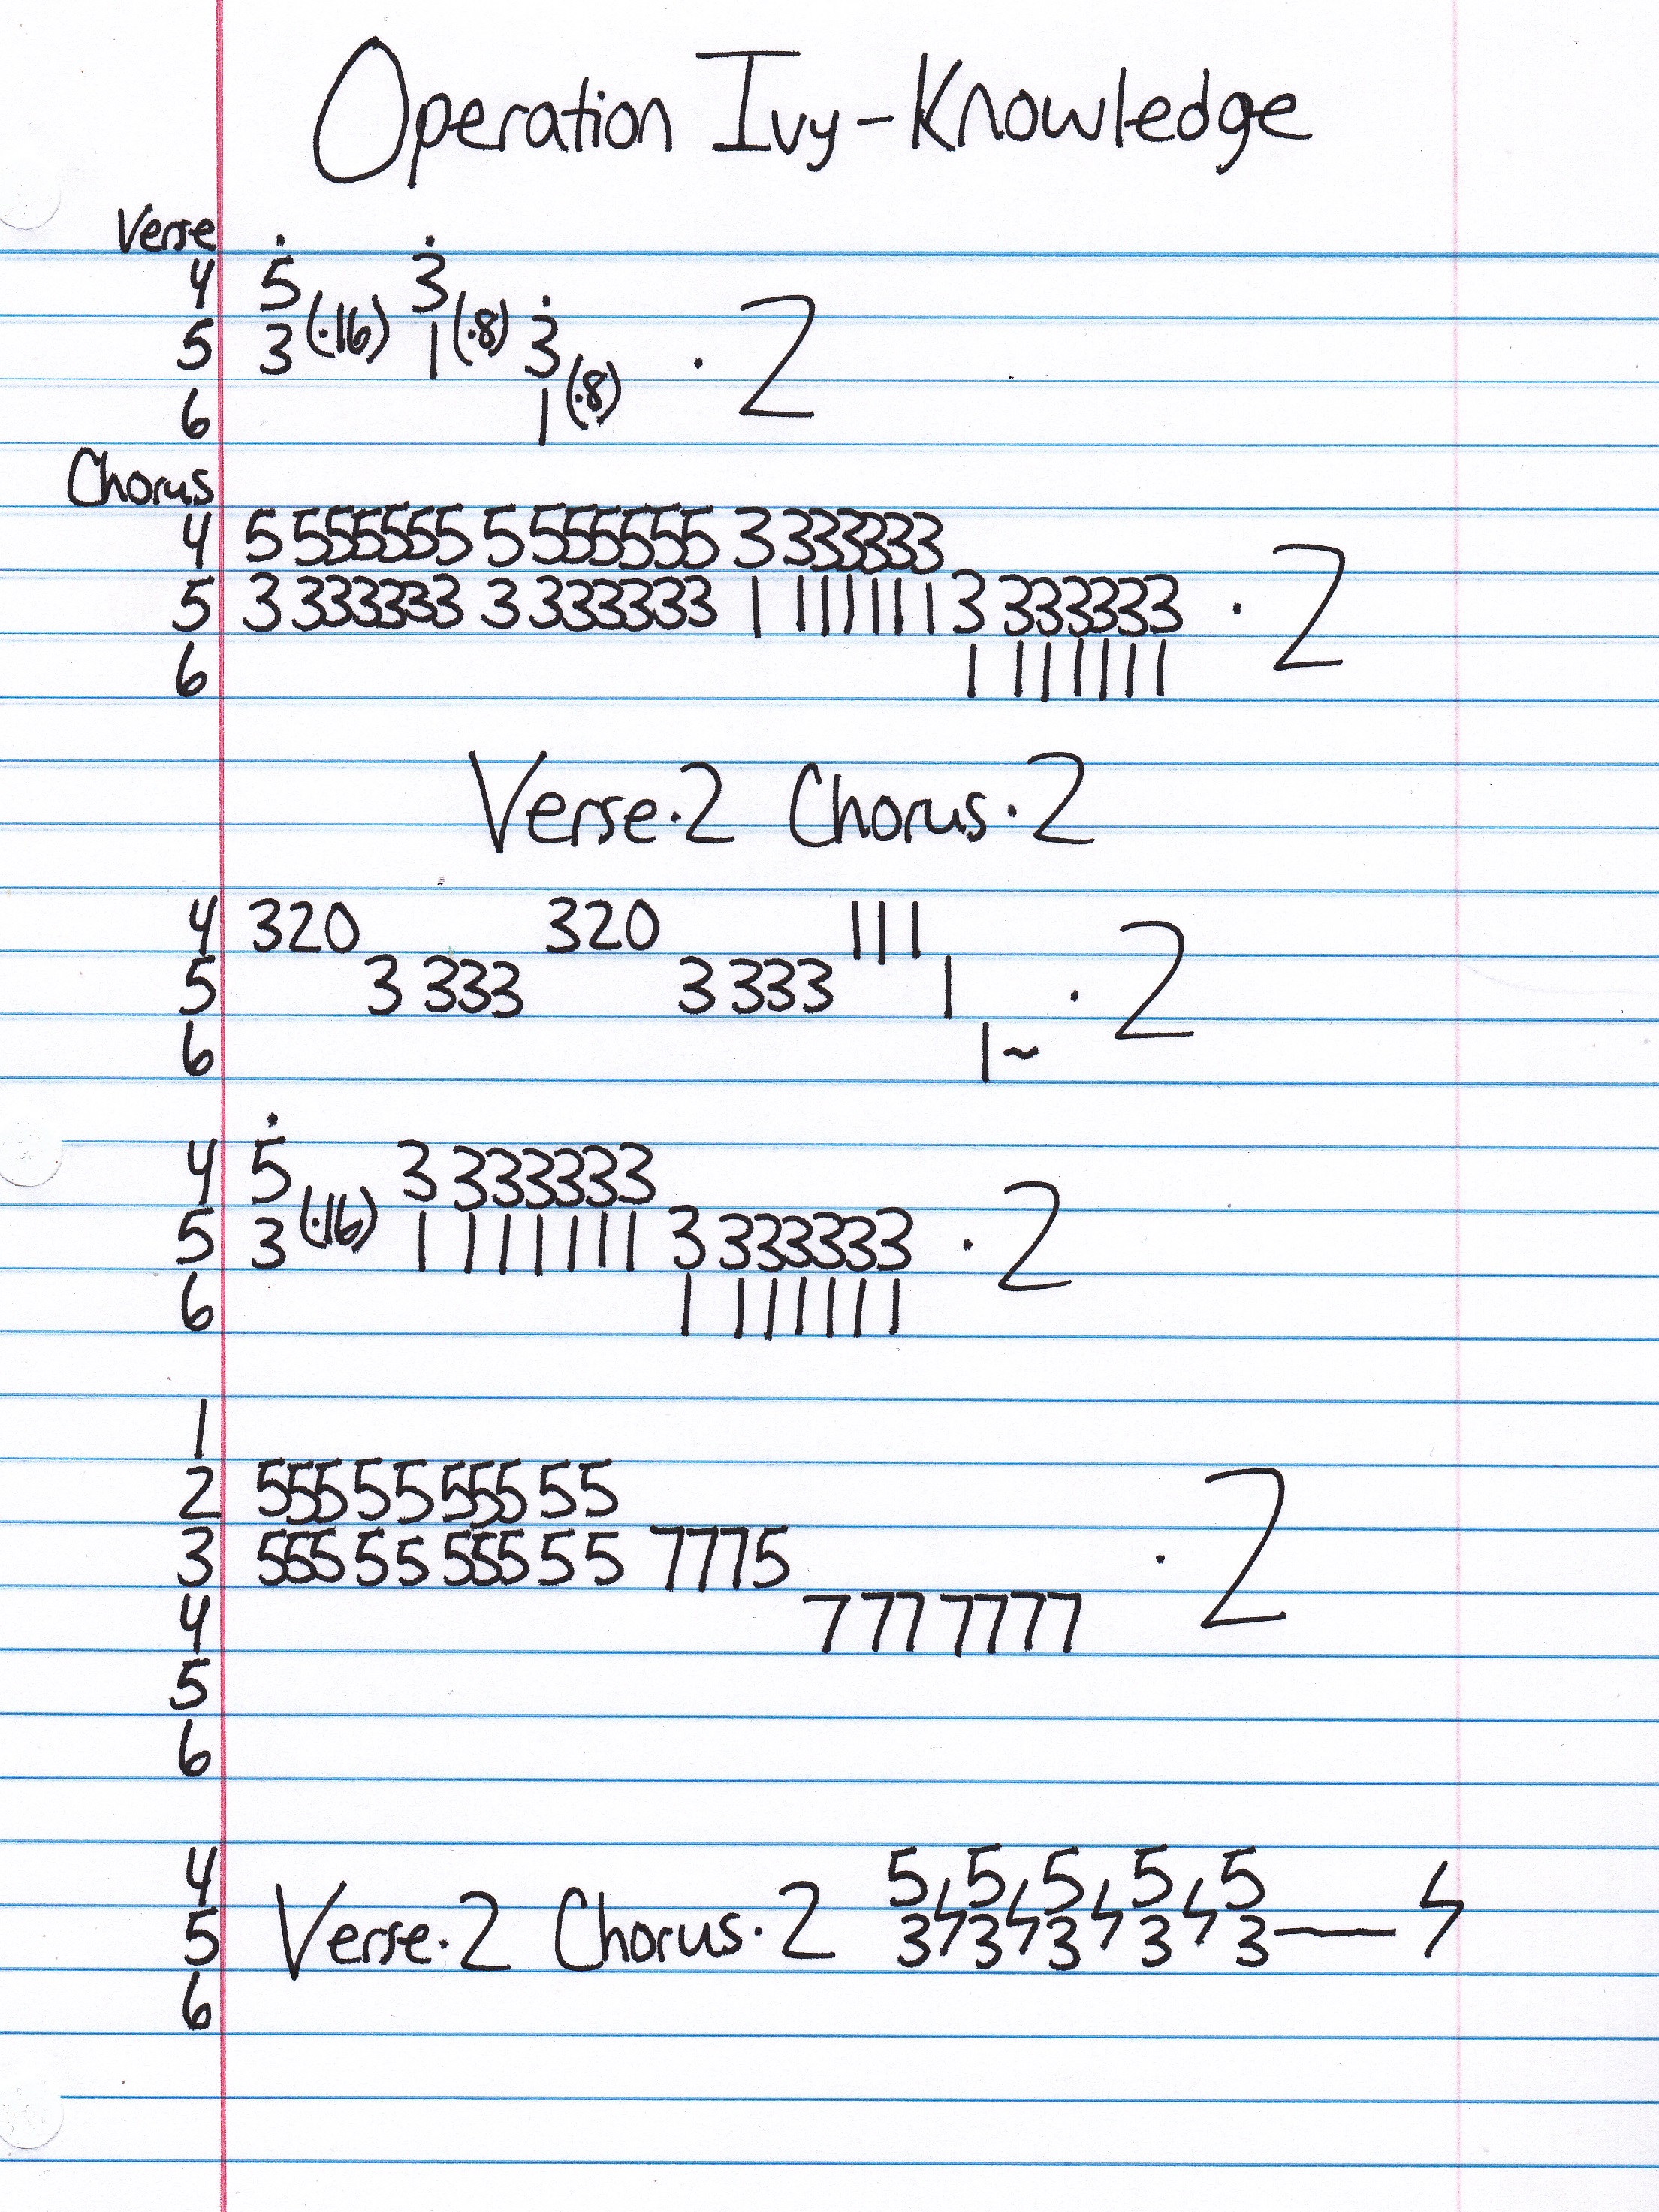 Operation Ivy-Knowledge
Verse
4 5 3
5 3 (·16) 1 (·8) 3 · 2
6 1 (·8)
Chorus
4 5 555555 5 555555 3 333333
5 3 333333 3 333333 1 111111 3 333333 · 2
6 1 111111
Verse·2 Chorus·2
4 320 320 111
5 3 333 3 333 1 · 2
6 1~
4 5 3 333333
5 3 (·16) 1 111111 3 333333 · 2
6 1 111111
1
2 555 5 5 555 5 5
3 555 5 5 555 5 5 7775 · 2
4 7 77 7777
5
6
4 5 5 5 5 5
5 Verse·2 Chorus·2 3 3 3 3 3—
6